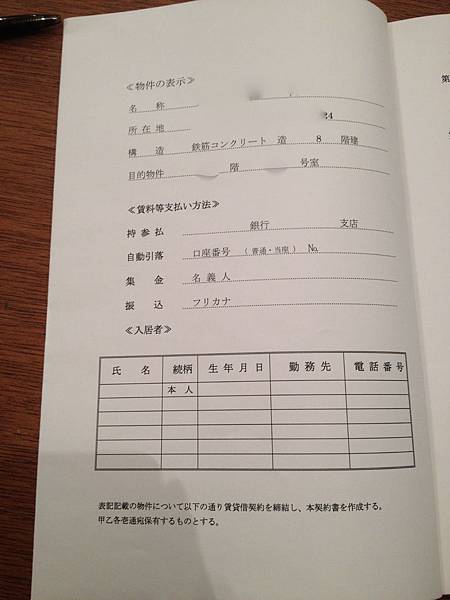 ≪物件の表示≫
名 称
所 在 地 24
構 造 鉄筋コンクリート 造 8 階建
目的物件 階 号室
≪賃料等支払い方法≫
持 参 払 銀行 支店
自動引落 口座番号 (普通・当座) №
集 金 名 義 人
振 込 フリカナ
≪入居者≫
氏 名 続柄 生 年 月 日 勤 務 先 電 話 番 号
本 人
表記記載の物件について以下の通り賃貸借契約を締結し、本契約書を作成する。
甲乙各壱通宛保有するものとする。
第